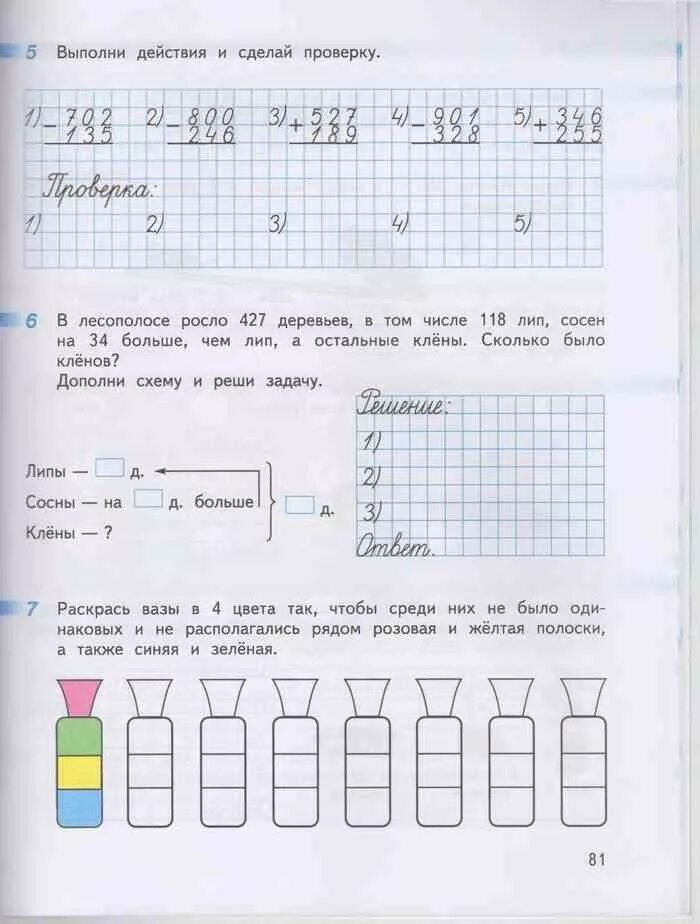 5 Выполни действия и сделай проверку.
1) – 702 2) – 800 3) + 527 4) – 901 5) + 346
135 246 189 328 255
Проверка:
1) 2) 3) 4) 5)
6 В лесополосе росло 427 деревьев, в том числе 118 лип, сосен
на 34 больше, чем лип, а остальные клёны. Сколько было
клёнов?
Дополни схему и реши задачу.
Решение:
1)
2)
3)
Ответ.
Липы — д.
Сосны — на д. больше д.
Клёны — ?
7 Раскрась вазы в 4 цвета так, чтобы среди них не было оди-
наковых и не располагались рядом розовая и жёлтая полоски,
а также синяя и зелёная.
81